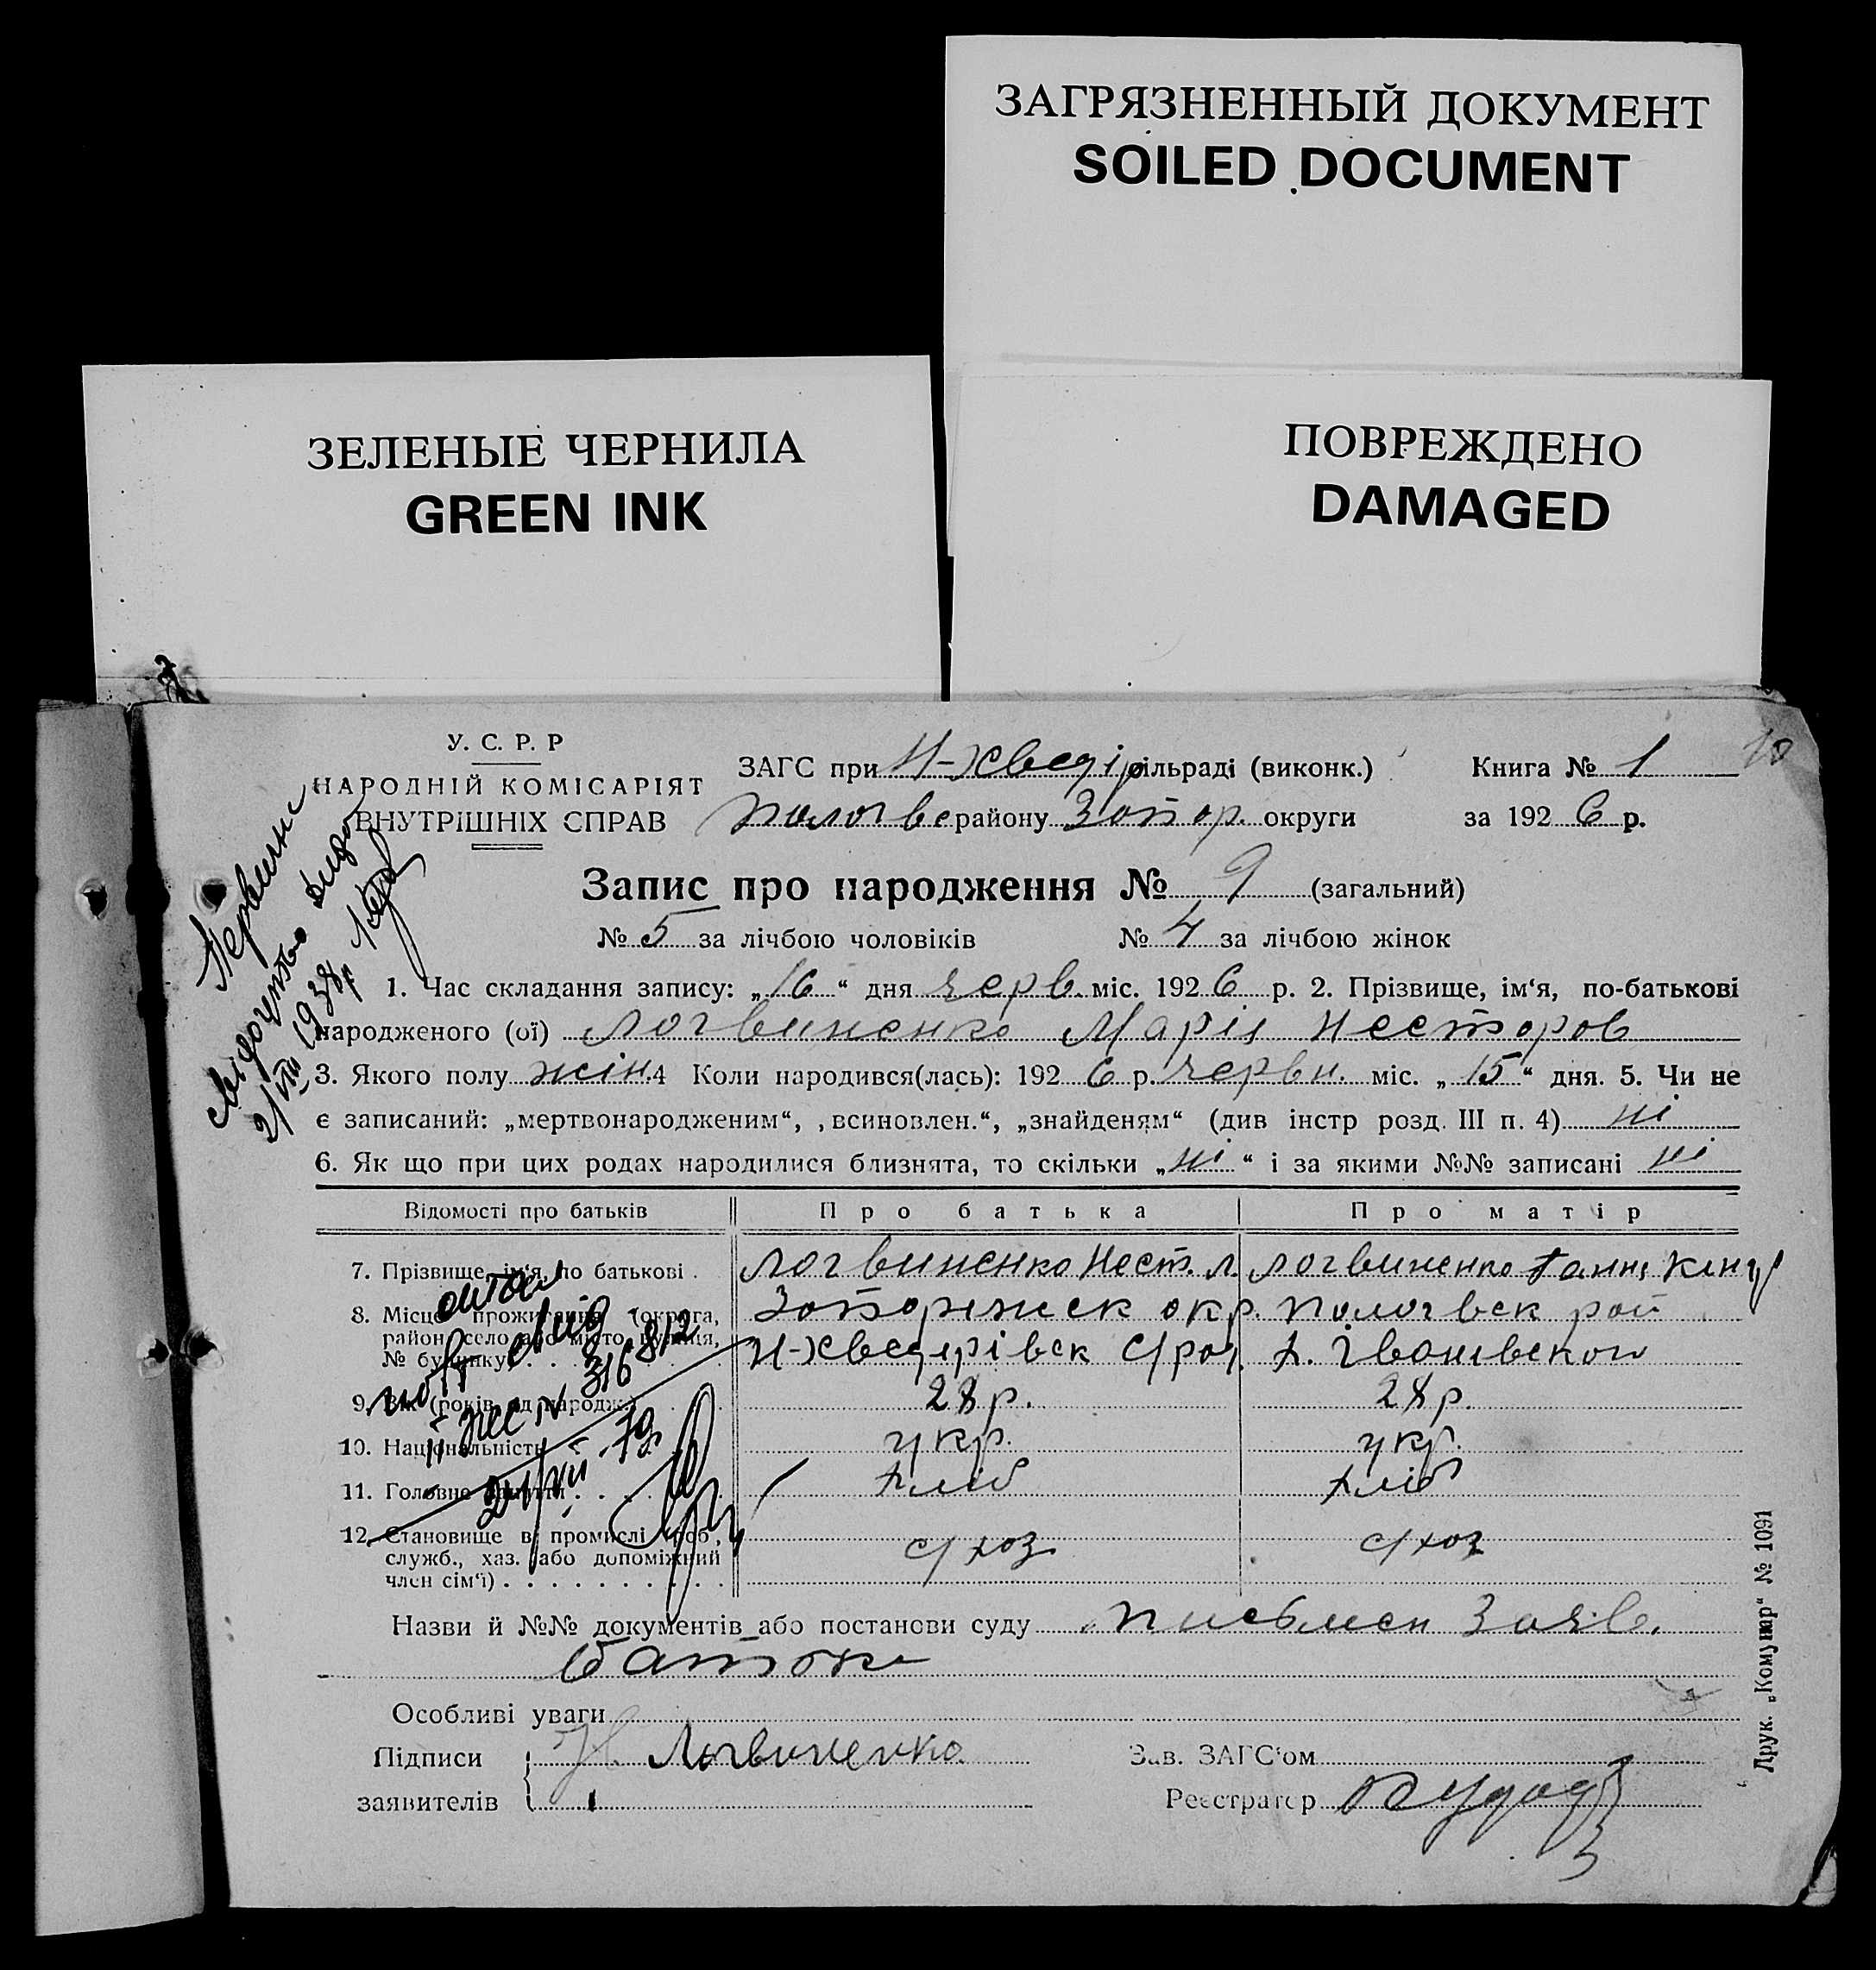 ЗАГРЯЗНЕННЫЙ ДОКУМЕНТ
SOILED DOCUMENT
ЗЕЛЕНЫЕ ЧЕРНИЛА
GREEN INK
ПОВРЕЖДЕНО
DAMAGED
У. С. Р. Р
НАРОДНІЙ КОМІСАРІЯТ
ВНУТРІШНІХ СПРАВ
ЗАГС при Н-Хведір сільраді (виконк.) Книга № 1
10
Пологве району Запор. округи за 1926 р.
Запис про народження № 9 (загальний)
№ 5 за лічбою чоловіків № 4 за лічбою жінок
1. Час складання запису: „16“ дня черв. міс. 1926 р. 2. Прізвище, ім‘я, по-батькові
народженого (ої) Логвиненко Марія Несторов
3. Якого полу жін. 4 Коли народився(лась): 1926 р. червн. міс. „15“ дня. 5. Чи не
є записаний: „мертвонародженим“, „всиновлен.“, „знайденям“ (див інстр розд. III п. 4) ні
6. Як що при цих родах народилися близнята, то скільки „ні“ і за якими №№ записані ні
Відомості про батьків Про батька Про матір
7. Прізвище, ім‘я, по батькові . Логвиненко Нест. Л. Логвиненко Ганна
8. Місце проживання (округа, Запоріжск окр. Пологвск рай
район, село або місто, вулиця,
№ будинку) . . . Н-Хведирівск С/рад. х. Івановской
9. Вік (років від народж.) 28 р. 28 р.
10. Національність укр. укр.
11. Головне заняття . . . . хліб хліб
12. Становище в промислі (роб., с/хоз с/хоз
служб., хаз. або допоміжний
член сім‘ї) . . . . . . . . . .
Назви й №№ документів або постанови суду письмен Заяв.
батька
Особливі уваги
Підписи Н. Логвиненко Зав. ЗАГС‘ом
заявителів Реєстратор
Друк. „Комунар“ № 1091
Первичне
свідоцтво видано
1938р
№ 316812